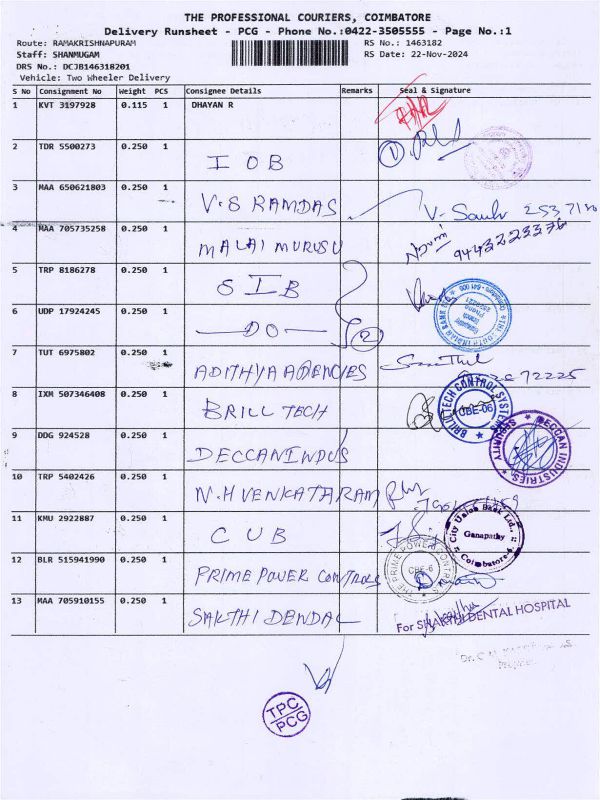 THE PROFESSIONAL COURIERS, COIMBATORE
Delivery Runsheet - PCG - Phone No.:0422-3505555 - Page No.:1
Route: RAMAKRISHNAPURAM
RS No.: 1463182
Staff: SHANMUGAM
RS Date: 22-Nov-2024
DRS No.: DCJB146318201
Vehicle: Two Wheeler Delivery
S No Consignment No Weight PCS Consignee Details Remarks Seal & Signature
1 KVT 3197928 0.115 1 DHAYAN R
2 TDR 5500273 0.250 1 IOB 1
3 MAA 650621803 0.250 1 V.S RAMDAS V.
4 MAA 705735258 0.250 1 MALAI MURUSU
5 TRP 8186278 0.250 1 SIB
6 UDP 17924245 0.250 1 —DO— 2
7 TUT 6975802 0.250 1 ADITHYA AGENCIES
8 IXM 507346408 0.250 1 BRILL TECH BRILL TECH CONTROL SYSTEM CBE-06
9 DDG 924528 0.250 1 DECCANINDUS DECCAN INDUSTRIES SECURITY
10 TRP 5402426 0.250 1 N.H VENKATARAM
11 KMU 2922887 0.250 1 CUB City Union Bank Ltd., Ganapathy Coimbatore-6.
12 BLR 515941990 0.250 1 PRIME POWER CONTROLS THE PRIME POWER CONTROLS CBE-6
13 MAA 705910155 0.250 1 SAKTHI DENDAL For SHAKTHI DENTAL HOSPITAL
TPC
PCG